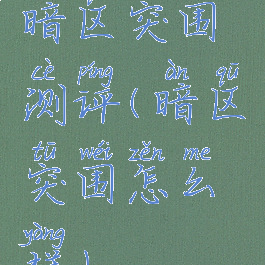 暗区突围
cè píng àn qū
测评(暗区
tū wéi zěn me
突围怎么
yàng
样)